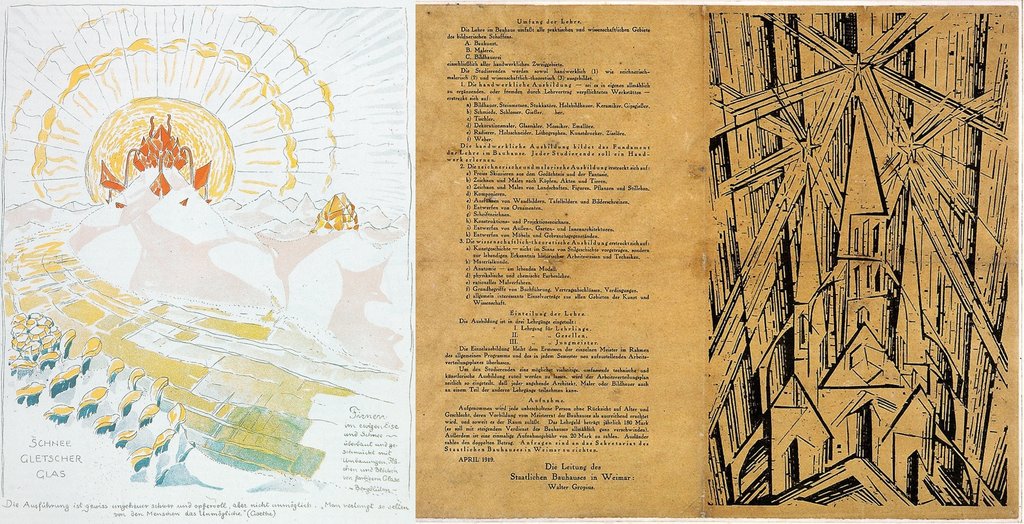 SCHNEE
GLETSCHER
GLAS
Firnen
im ewigen Eise
und Schnee –
überbaut und ge-
schmückt mit
Umbauungen, Flä-
chen und Blöcken
von farbigem Glase
– Bergblüten –
Die Ausführung ist gewiss ungeheuer schwer und opfervoll, aber nicht unmöglich. „Man verlangt so selten
von den Menschen das Unmögliche." (Goethe)
Umfang der Lehre.
Die Lehre im Bauhaus umfaßt alle praktischen und wissenschaftlichen Gebiete
des bildnerischen Schaffens.
A. Baukunst,
B. Malerei,
C. Bildhauerei
einschließlich aller handwerklichen Zweiggebiete.
Die Studierenden werden sowohl handwerklich (1) wie zeichnerisch-
malerisch (2) und wissenschaftlich-theoretisch (3) ausgebildet.
1. Die handwerkliche Ausbildung — sei es in eigenen allmählich
zu ergänzenden, oder fremden durch Lehrvertrag verpflichteten Werkstätten —
erstreckt sich auf:
a) Bildhauer, Steinmetzen, Stukkatöre, Holzbildhauer, Keramiker, Gipsgießer,
b) Schmiede, Schlosser, Gießer, her,
c) Tischler,
d) Dekorationsmaler, Glasmaler, Mosaiker, Emallöre,
e) Radierer, Holzschneider, Lithographen, Kunstdrucker, Ziselöre,
f) Weber.
Die handwerkliche Ausbildung bildet das Fundament
der Lehre im Bauhause. Jeder Studierende soll ein Hand-
werk erlernen.
2. Die zeichnerische und malerische Ausbildung erstreckt sich auf:
a) Freies Skizzieren aus dem Gedächtnis und der Fantasie,
b) Zeichnen und Malen nach Köpfen, Akten und Tieren,
c) Zeichnen und Malen von Landschaften, Figuren, Pflanzen und Stilleben,
d) Komponieren,
e) Ausführen von Wandbildern, Tafelbildern und Bilderschreinen,
f) Entwerfen von Ornamenten,
g) Schriftzeichnen,
h) Konstruktions- und Projektionszeichnen,
i) Entwerfen von Außen-, Garten- und Innenarchitekturen,
k) Entwerfen von Möbeln und Gebrauchsgegenständen.
3. Die wissenschaftlich-theoretische Ausbildung erstreckt sich auf:
a) Kunstgeschichte — nicht im Sinne von Stilgeschichte vorgetragen, sondern
zur lebendigen Erkenntnis historischer Arbeitsweisen und Techniken,
b) Materialkunde,
c) Anatomie — am lebenden Modell,
d) physikalische und chemische Farbenlehre,
e) rationelles Malverfahren,
f) Grundbegriffe von Buchführung, Vertragsabschlüssen, Verdingungen,
g) allgemein interessante Einzelvorträge aus allen Gebieten der Kunst und
Wissenschaft.
Einteilung der Lehre.
Die Ausbildung ist in drei Lehrgänge eingeteilt:
I. Lehrgang für Lehrlinge,
II. „ „ Gesellen,
III. „ „ Jungmeister.
Die Einzelausbildung bleibt dem Ermessen der einzelnen Meister im Rahmen
des allgemeinen Programms und des in jedem Semester neu aufzustellenden Arbeits-
verteilungsplanes überlassen.
Um den Studierenden eine möglichst vielseitige, umfassende technische und
künstlerische Ausbildung zuteil werden zu lassen, wird der Arbeitsverteilungsplan
zeitlich so eingeteilt, daß jeder angehende Architekt, Maler oder Bildhauer auch
an einem Teil der anderen Lehrgänge teilnehmen kann.
Aufnahme.
Aufgenommen wird jede unbescholtene Person ohne Rücksicht auf Alter und
Geschlecht, deren Vorbildung vom Meisterrat des Bauhauses als ausreichend erachtet
wird, und soweit es der Raum zuläßt. Das Lehrgeld beträgt jährlich 180 Mark
(es soll mit steigendem Verdienst des Bauhauses allmählich ganz verschwinden).
Außerdem ist eine einmalige Aufnahmegebühr von 20 Mark zu zahlen. Ausländer
zahlen den doppelten Betrag. Anfragen sind an das Sekretariat des
Staatlichen Bauhauses in Weimar zu richten.
APRIL 1919.
Die Leitung des
Staatlichen Bauhauses in Weimar:
Walter Gropius.